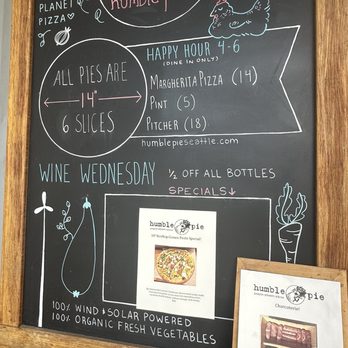 PLANET
PIZZA
HUMBLE
HAPPY HOUR 4-6
(DINE IN ONLY)
ALL PIES ARE
14"
6 SLICES
MARGHERITA PIZZA (14)
PINT (5)
PITCHER (18)
humblepieseattle.com
WINE WEDNESDAY ½ OFF ALL BOTTLES
SPECIALS↓
humble pie
humble pie
Charcuterie!
100% WIND & SOLAR POWERED
100% ORGANIC FRESH VEGETABLES